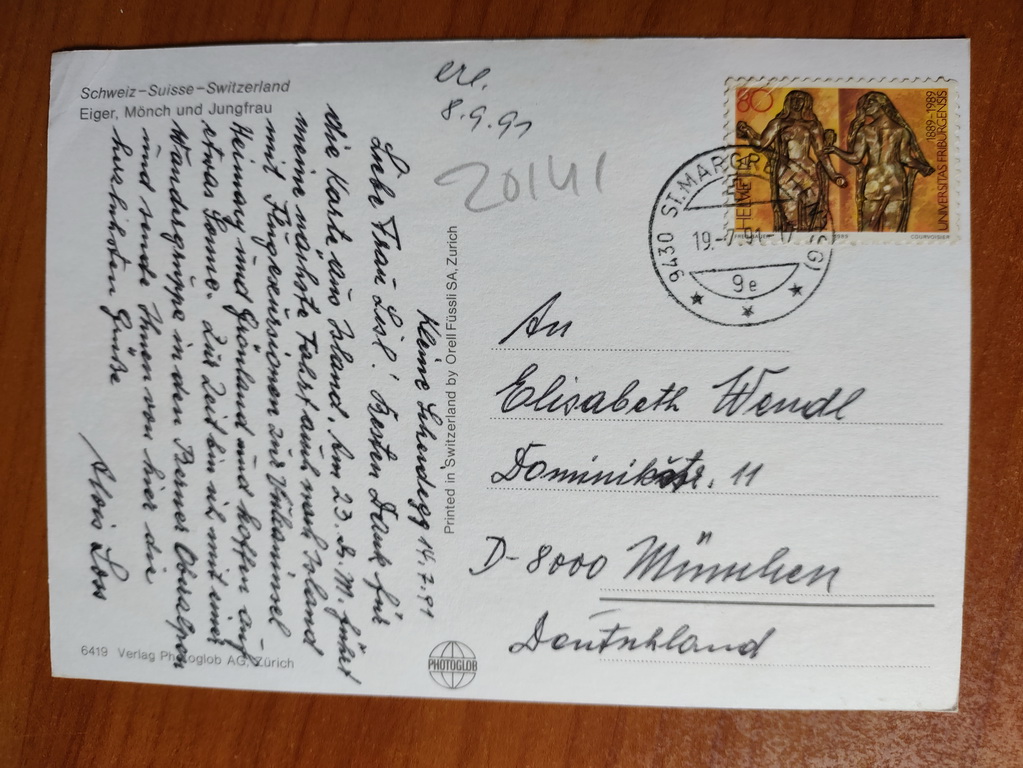 Schweiz-Suisse-Switzerland
Eiger, Mönch und Jungfrau
erl.
8.9.91
20141
Kleine Scheidegg 14.7.91
Liebe Frau Lisl! Besten Dank für
die Karte aus Island. Am 23. d. M. führt
meine nächste Fahrt auch nach Island
mit Flugexkursionen zur Vulkaninsel
Heimaey und Grönland und hoffen auf
etwas Sonne. Zur Zeit bin ich mit einer
Wandergruppe in den Berner Oberalpen
und sende Ihnen von hier die
herzlichsten Grüße
Alois
Printed in Switzerland by Orell Füssli SA, Zurich
6419 Verlag Photoglob AG, Zürich
PHOTOGLOB
80
HELVETIA
1889-1989
UNIVERSITAS FRIBURGENSIS
COURVOISIER
9430 ST. MARGRE (SG)
19.-7.91-17
9e
An
Elisabeth Wendl
Dominikstr. 11
D-8000 München
Deutschland